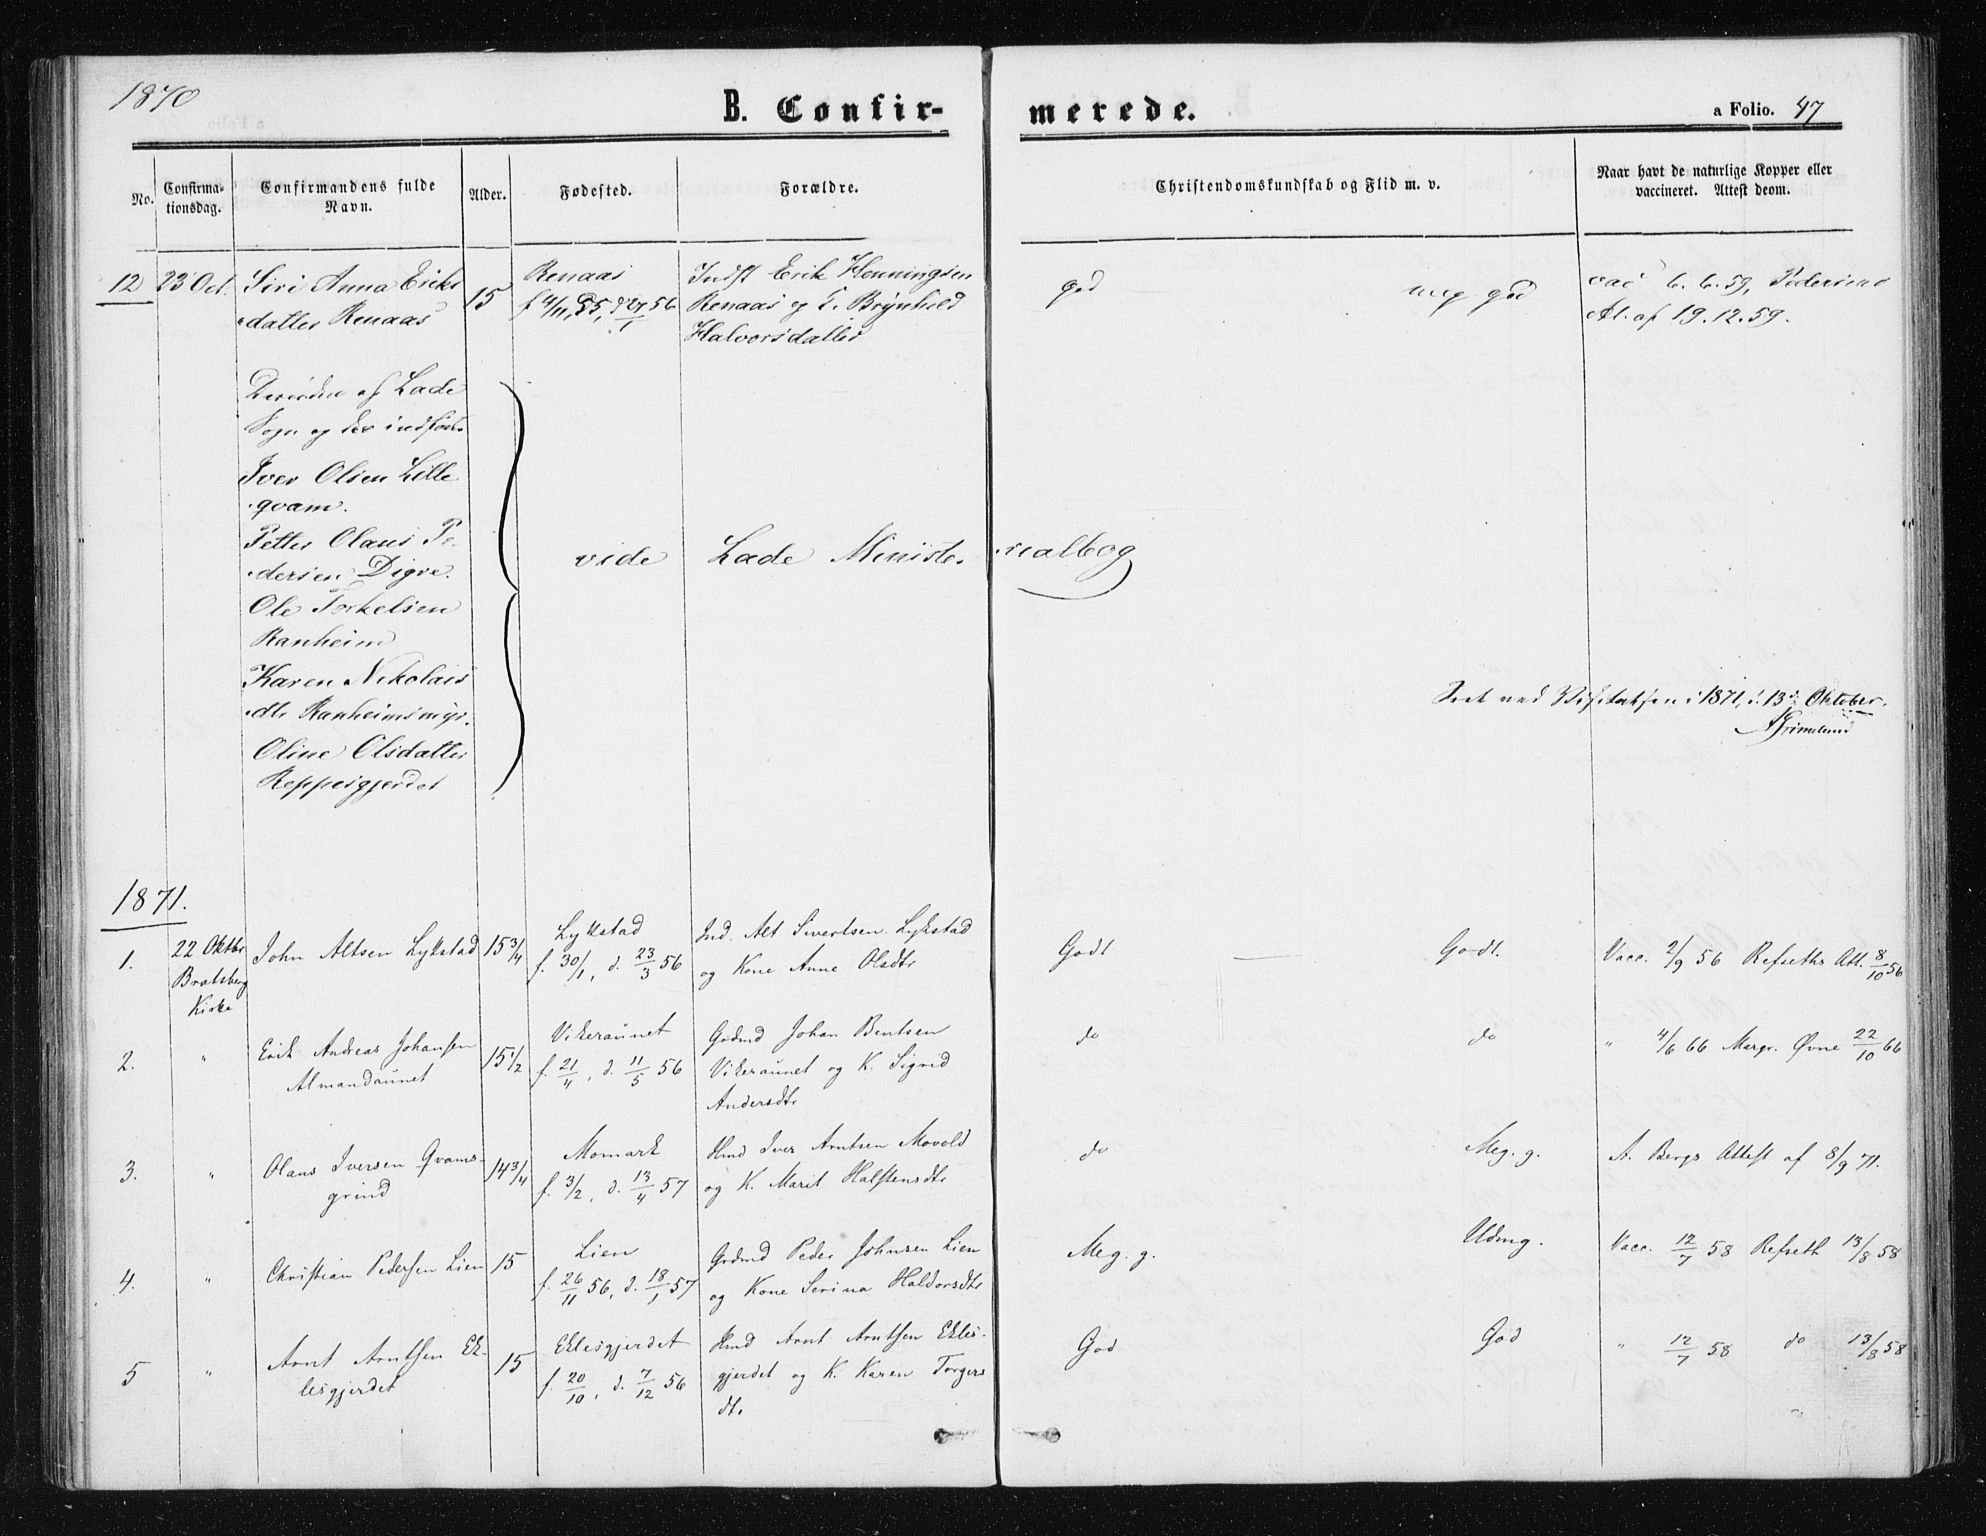 1870
B. Confirmerede.
a Folio. 47
No.
Confirmationsdag.
Confirmandens fulde Navn.
Alder.
Fødested.
Forældre.
Christendomskundskab og Flid m. v.
Naar havt de naturlige Kopper eller vaccineret. Attest deom.
12 23 Oct. Siri Anna Eriks
datter Renaas
15
Renaas
f 4/11, 55, d 27/1 56
Indst Erik Henningsen
Renaas og K. Brynhild
Halvorsdatter
god
meg. god
vac 6. 6. 59, Pedersens
At. af 19. 12. 59.
Desuden af Lade
Sogn og der indførte
Iver Olsen Lille
qvam.
Petter Olaus Pe-
dersen Digre.
Ole Torkelsen
Ranheim
Karen Nikolais
dtr Ranheimsmyr.
Oline Olsdatter
Reppesgjerdet
vide Lade Ministe-rialbog
Seet ved Visitatsen i 1871, d. 13de Oktober.
Grimelund
1871.
1. 22 Oktbr
Bratsberg
Kirke
John Altsen Lykstad
15 3/4
Lykstad
f. 30/1, d. 23/3 56
Ind. Alt Sivertsen Lykstad
og Kone Anne Olsdtr
Godt
Godt.
Vacc. 2/9 56 Refseths Att. 8/10 56
2. "
Erik Andreas Johansen
Almandaunet
15 1/2
Vikeraunet
f. 21/4, d. 11/5 56
Grdmd Johan Bentsen
Vikeraunet og K. Sigrid
Andersdtr
do
do
" 4/6 66 Margr. Øvne 22/10 66
3. "
Olaus Iversen Qvams-
grind
14 3/4
Momark
f. 3/2, d. 13/4 57
Hmd Iver Arntsen Movold
og K. Marit Halstensdtr
do
Meg. g.
A. Bergs Attest af 8/9 71.
4. "
Christian Pedersen Lien
15
Lien
f. 26/11 56, d. 18/1 57
Grdmd Peder Johnsen Lien
og Kone Serina Haldorsdtr
Meg. g.
Udmg.
Vacc. 12/7 58 Refseth 13/8 58
5 "
Arnt Arntsen Ek-
lesgjerdet
15
Eklesgjerdet
f. 20/10, d. 7/12 56
Hmd Arnt Arntsen Ekles-
gjerdet og K. Karen Torgers
dtr
God
God
" 12/7 58 do 13/8 58